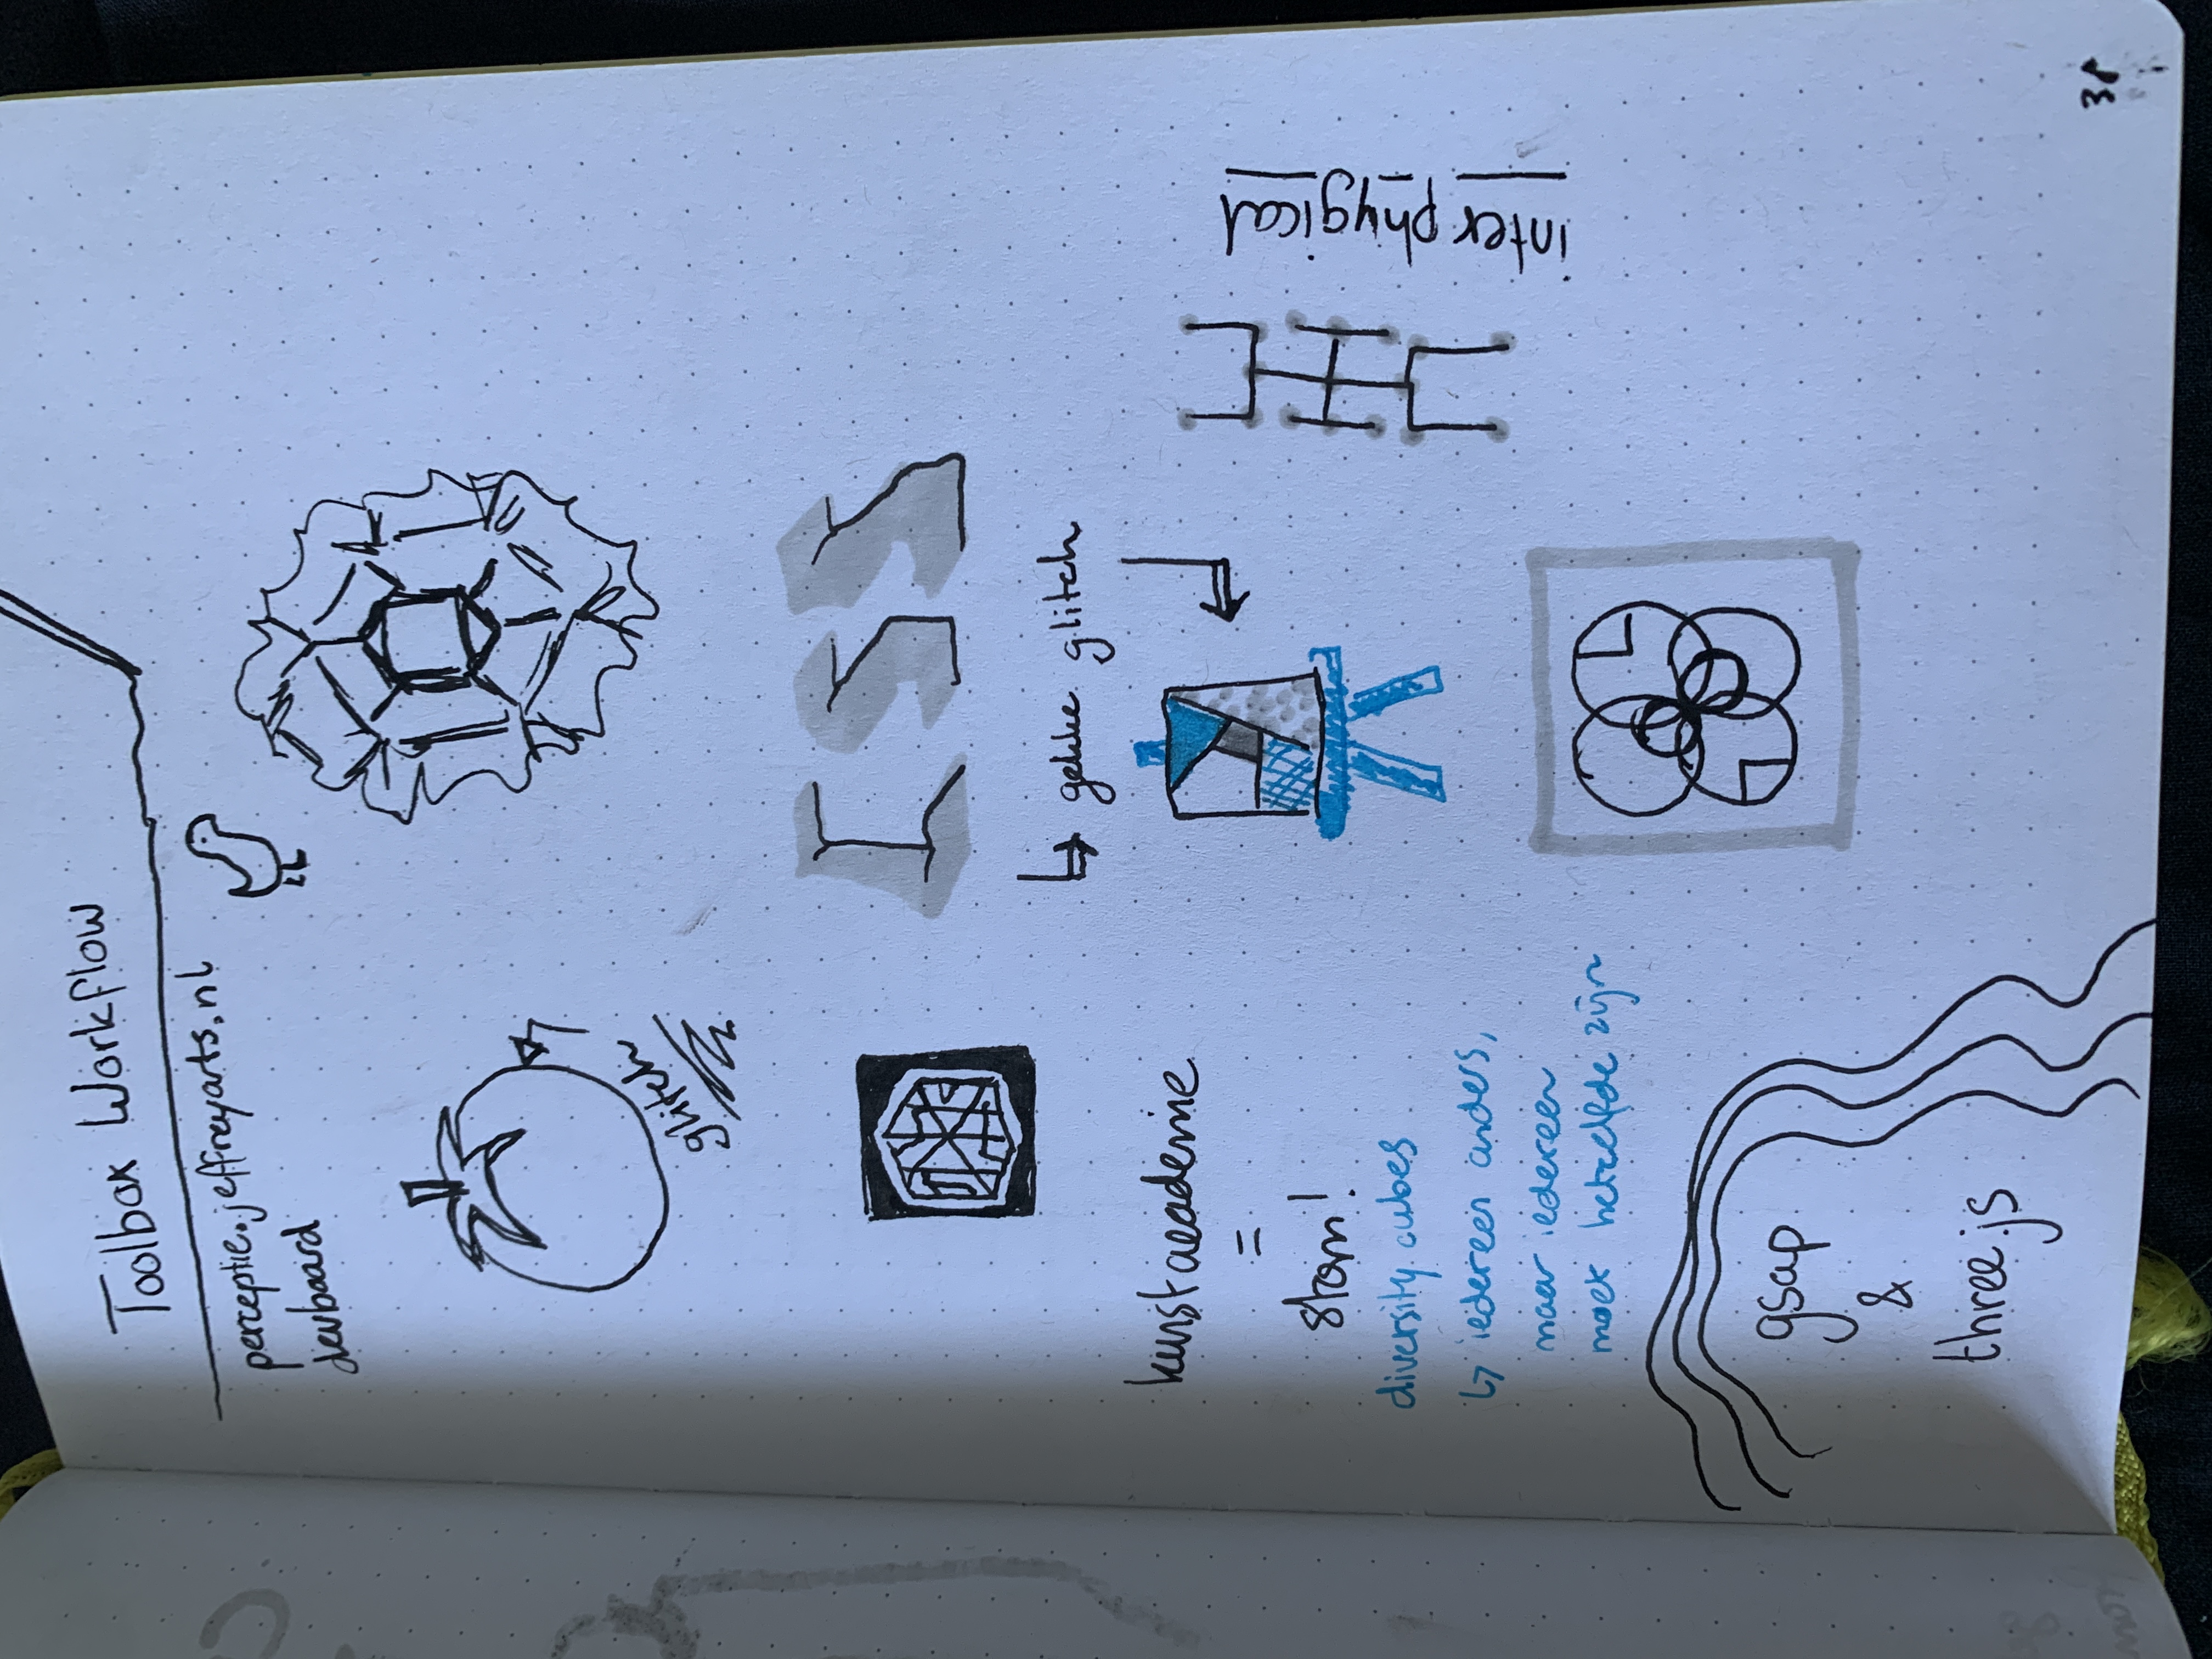 Toolbox Workflow
perceptie.jeffreyarts.nl
devboard
glitch
CSS
↳ gekke glitch
kunstacademie
=
stom!
diversity cubes
↳ iedereen anders,
maar iedereen
moet hetzelfde zijn
inter phygical
gsap
&
three.js
38